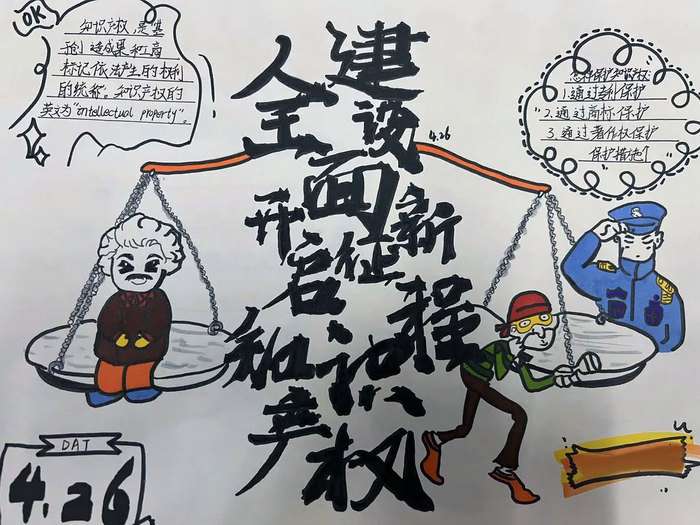 OK
知识产权,是“基
于创造成果和工商
标记依法产生的权利
的统称。知识产权的
英文为“intellectual property”。
全面开启知识产权
建设新征程
4.26
怎样保护知识产权
1.通过专利保护
2.通过商标保护
3.通过著作权保护
保护措施
DAT
4.26